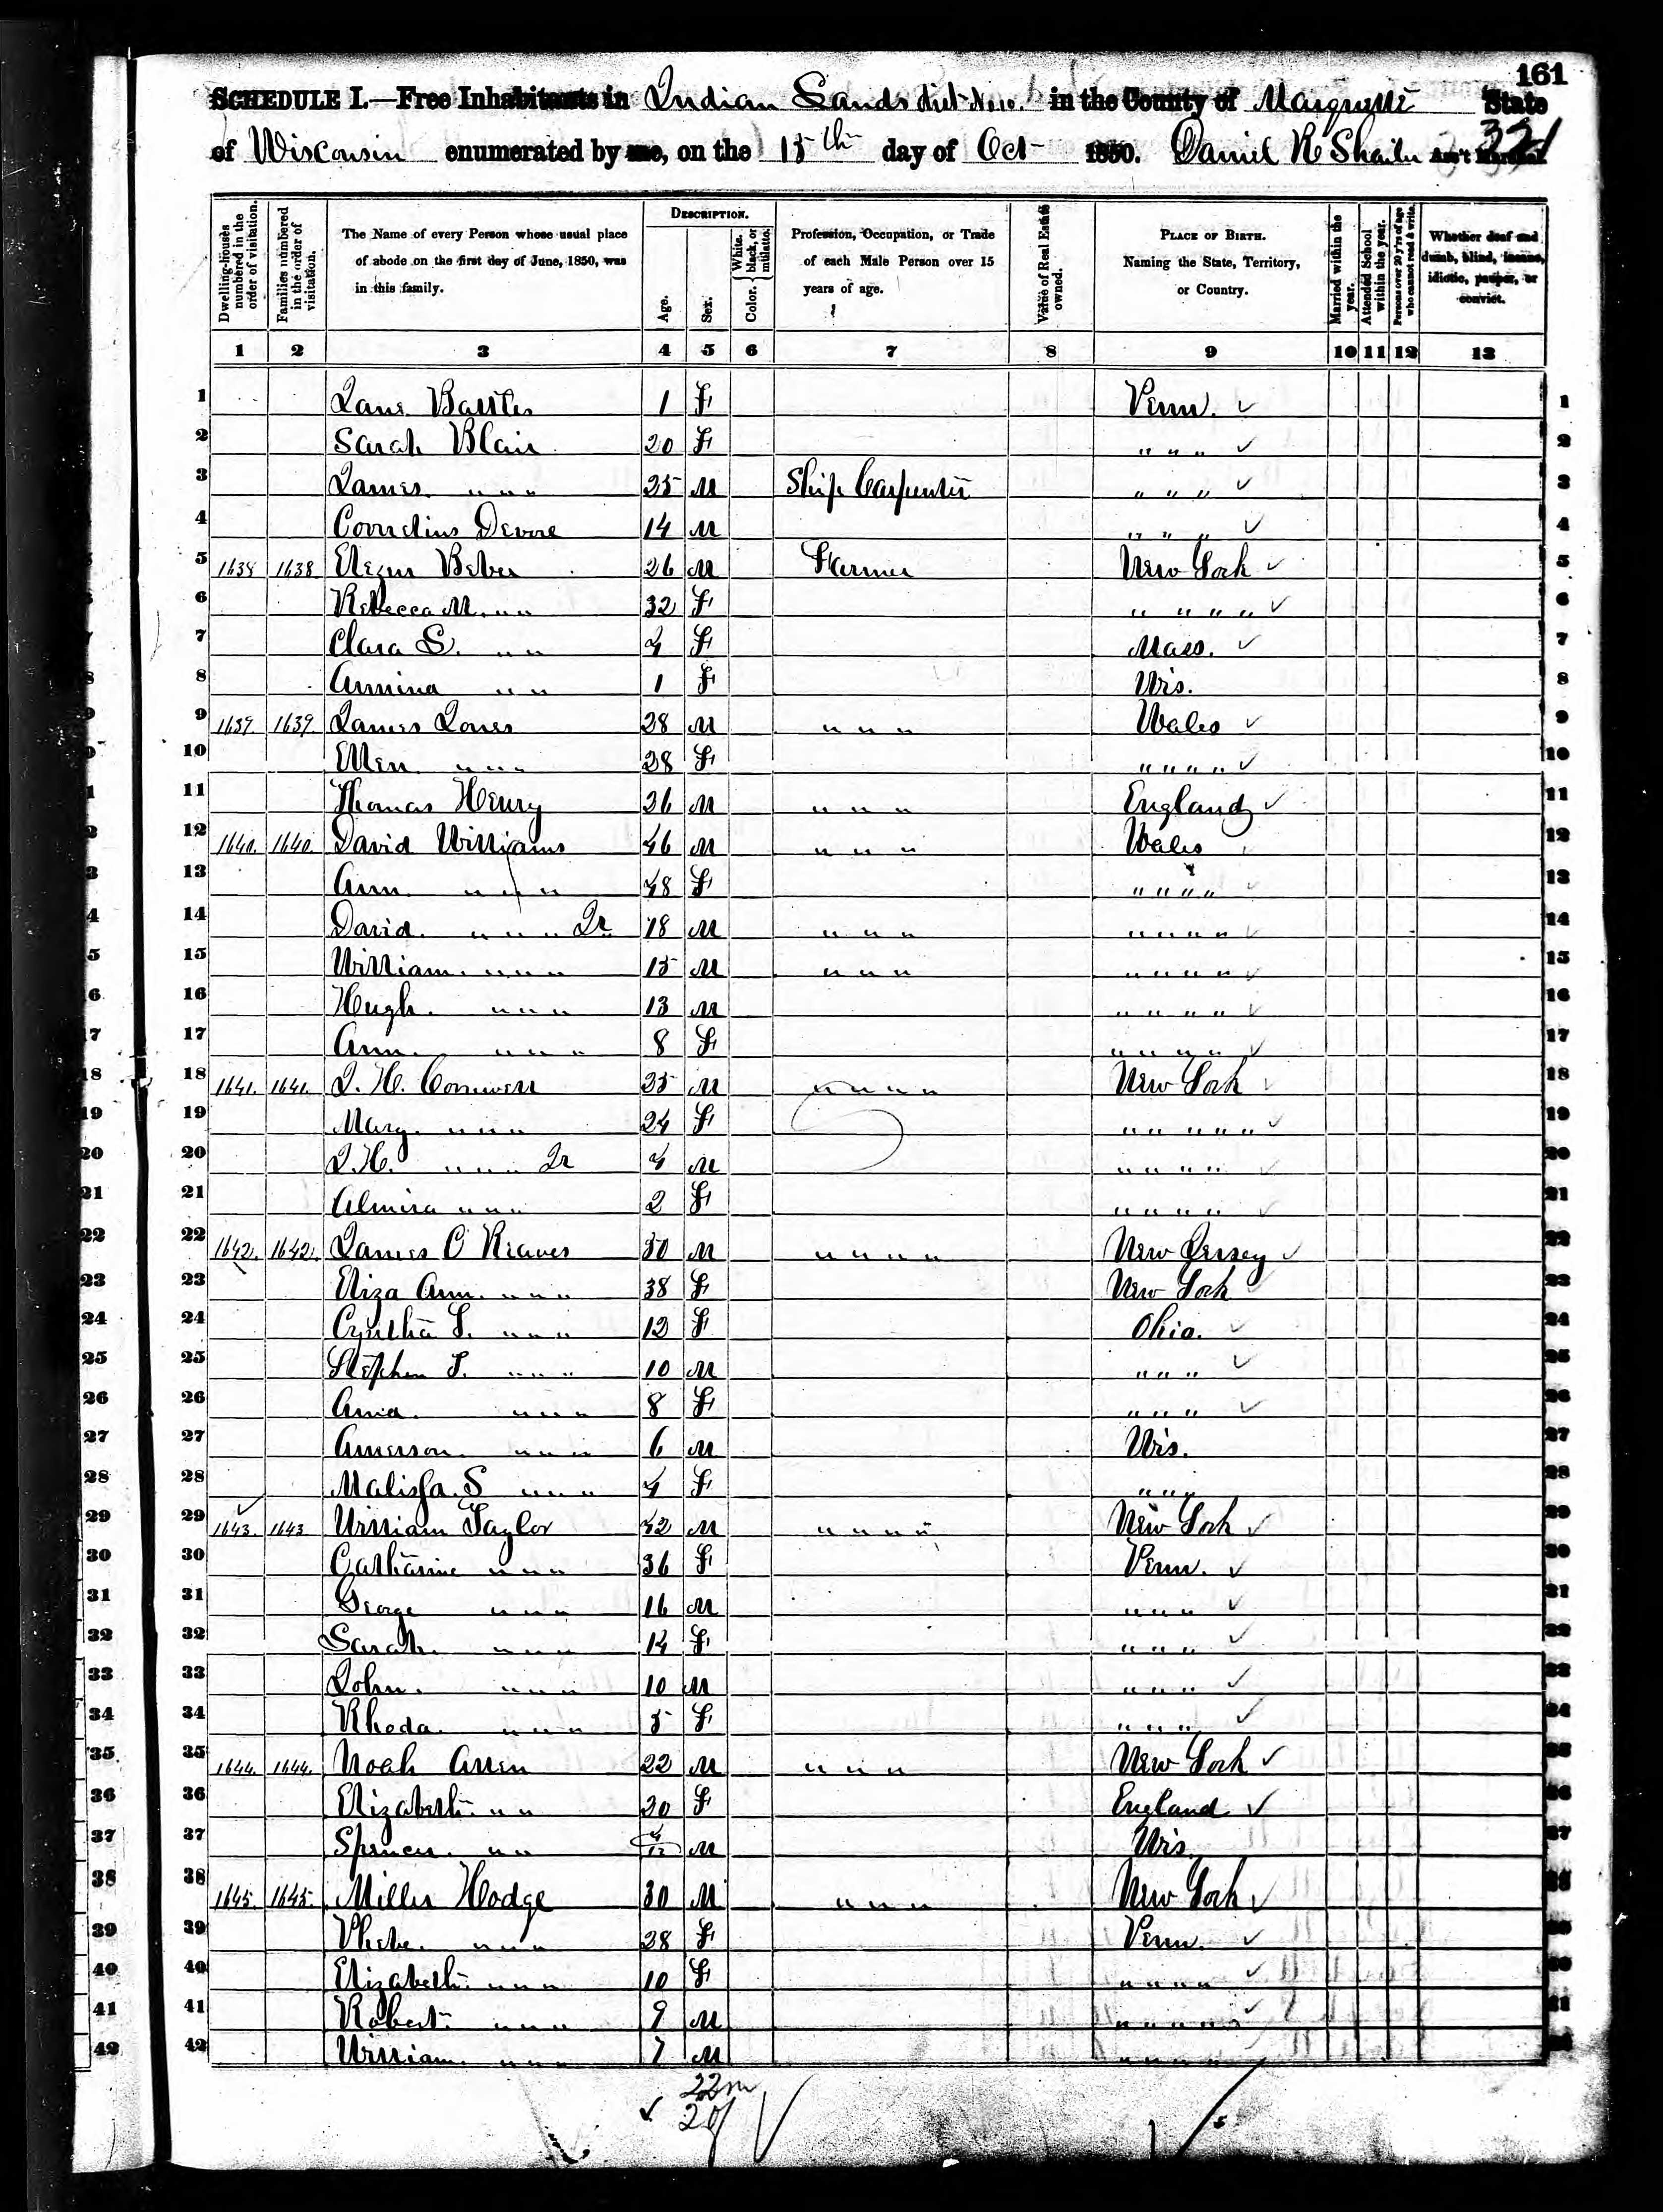 161
SCHEDULE I.—Free Inhabitants in Indian Lands in the County of Marquette State
of Wisconsin enumerated by me, on the 15th day of Oct 1850. Daniel R Ass't Marshal.
321
Dwelling-houses numbered in the order of visitation.
Families numbered in the order of visitation.
The Name of every Person whose usual place of abode on the first day of June, 1850, was in this family.
DESCRIPTION.
Age.
Sex.
Color. { White, black, or mulatto.
Profession, Occupation, or Trade of each Male Person over 15 years of age.
Value of Real Estate owned.
PLACE OF BIRTH. Naming the State, Territory, or Country.
Married within the year.
Attended School within the year.
Persons over 20 y'rs of age who cannot read & write.
Whether deaf and dumb, blind, insane, idiotic, pauper, or convict.
1 2 3 4 5 6 7 8 9 10 11 12 13
1 Jane 1 F Penn. 1
2 Sarah Blair 20 F " " " 2
3 James " " " 25 M Ship Carpenter " " " 3
4 Cornelius Devore 14 M " " " 4
5 1638 1638 26 M Farmer New York 5
6 Rebecca M. " " 32 F " " " " 6
7 Clara S. " " 4 F Mass. 7
8 " " 1 F Wis. 8
9 1639. 1639. James Jones 28 M " " " Wales 9
10 Ellen " " " 28 F " " " " 10
11 Thomas Henry 26 M " " " England 11
12 1640. 1640. David Williams 46 M " " " Wales 12
13 Ann " " " 48 F " " " " 13
14 David. " " " Jr 18 M " " " " " " " 14
15 William. " " " 15 M " " " " " " " 15
16 Hugh. " " " 13 M " " " " 16
17 Ann. " " " 8 F " " " " 17
18 1641. 1641. J. H. 25 M " " " " New York 18
19 Mary. " " " 24 F " " " " " 19
20 J. H. " " " Jr 4 M " " " " 20
21 Almira " " " 2 F " " " " 21
22 1642. 1642. James O Reaves M " " " " New Jersey 22
23 Eliza Ann. " " " 38 F New York 23
24 Cynthia " " " 12 F Ohio. 24
25 Stephen " " " 10 M " " " 25
26 " " " 8 F " " " 26
27 Amerson. " " " 6 M Wis. 27
28 Malissa. S " " " 4 F " " " 28
29 1643. 1643 William Taylor 42 M " " " " New York 29
30 Catharine " " " 36 F Penn. 30
31 George " " " 16 M " " " 31
32 Sarah. " " " 14 F " " " 32
33 John. " " " 10 M " " " 33
34 Rhoda. " " " 5 F " " " 34
35 1644. 1644. Noah Allen 22 M " " " New York 35
36 Elizabeth " " 20 F England 36
37 Spencer. " " 4/12 M Wis 37
38 1645. 1645. Miller Hodge 30 M " " " New York 38
39 Phebe. " " " 28 F Penn. 39
40 Elizabeth " " " 10 F " " " " 40
41 Robert " " " 9 M " " " " " 41
42 William. " " " 7 M " " " " " 42
22 m
20 f